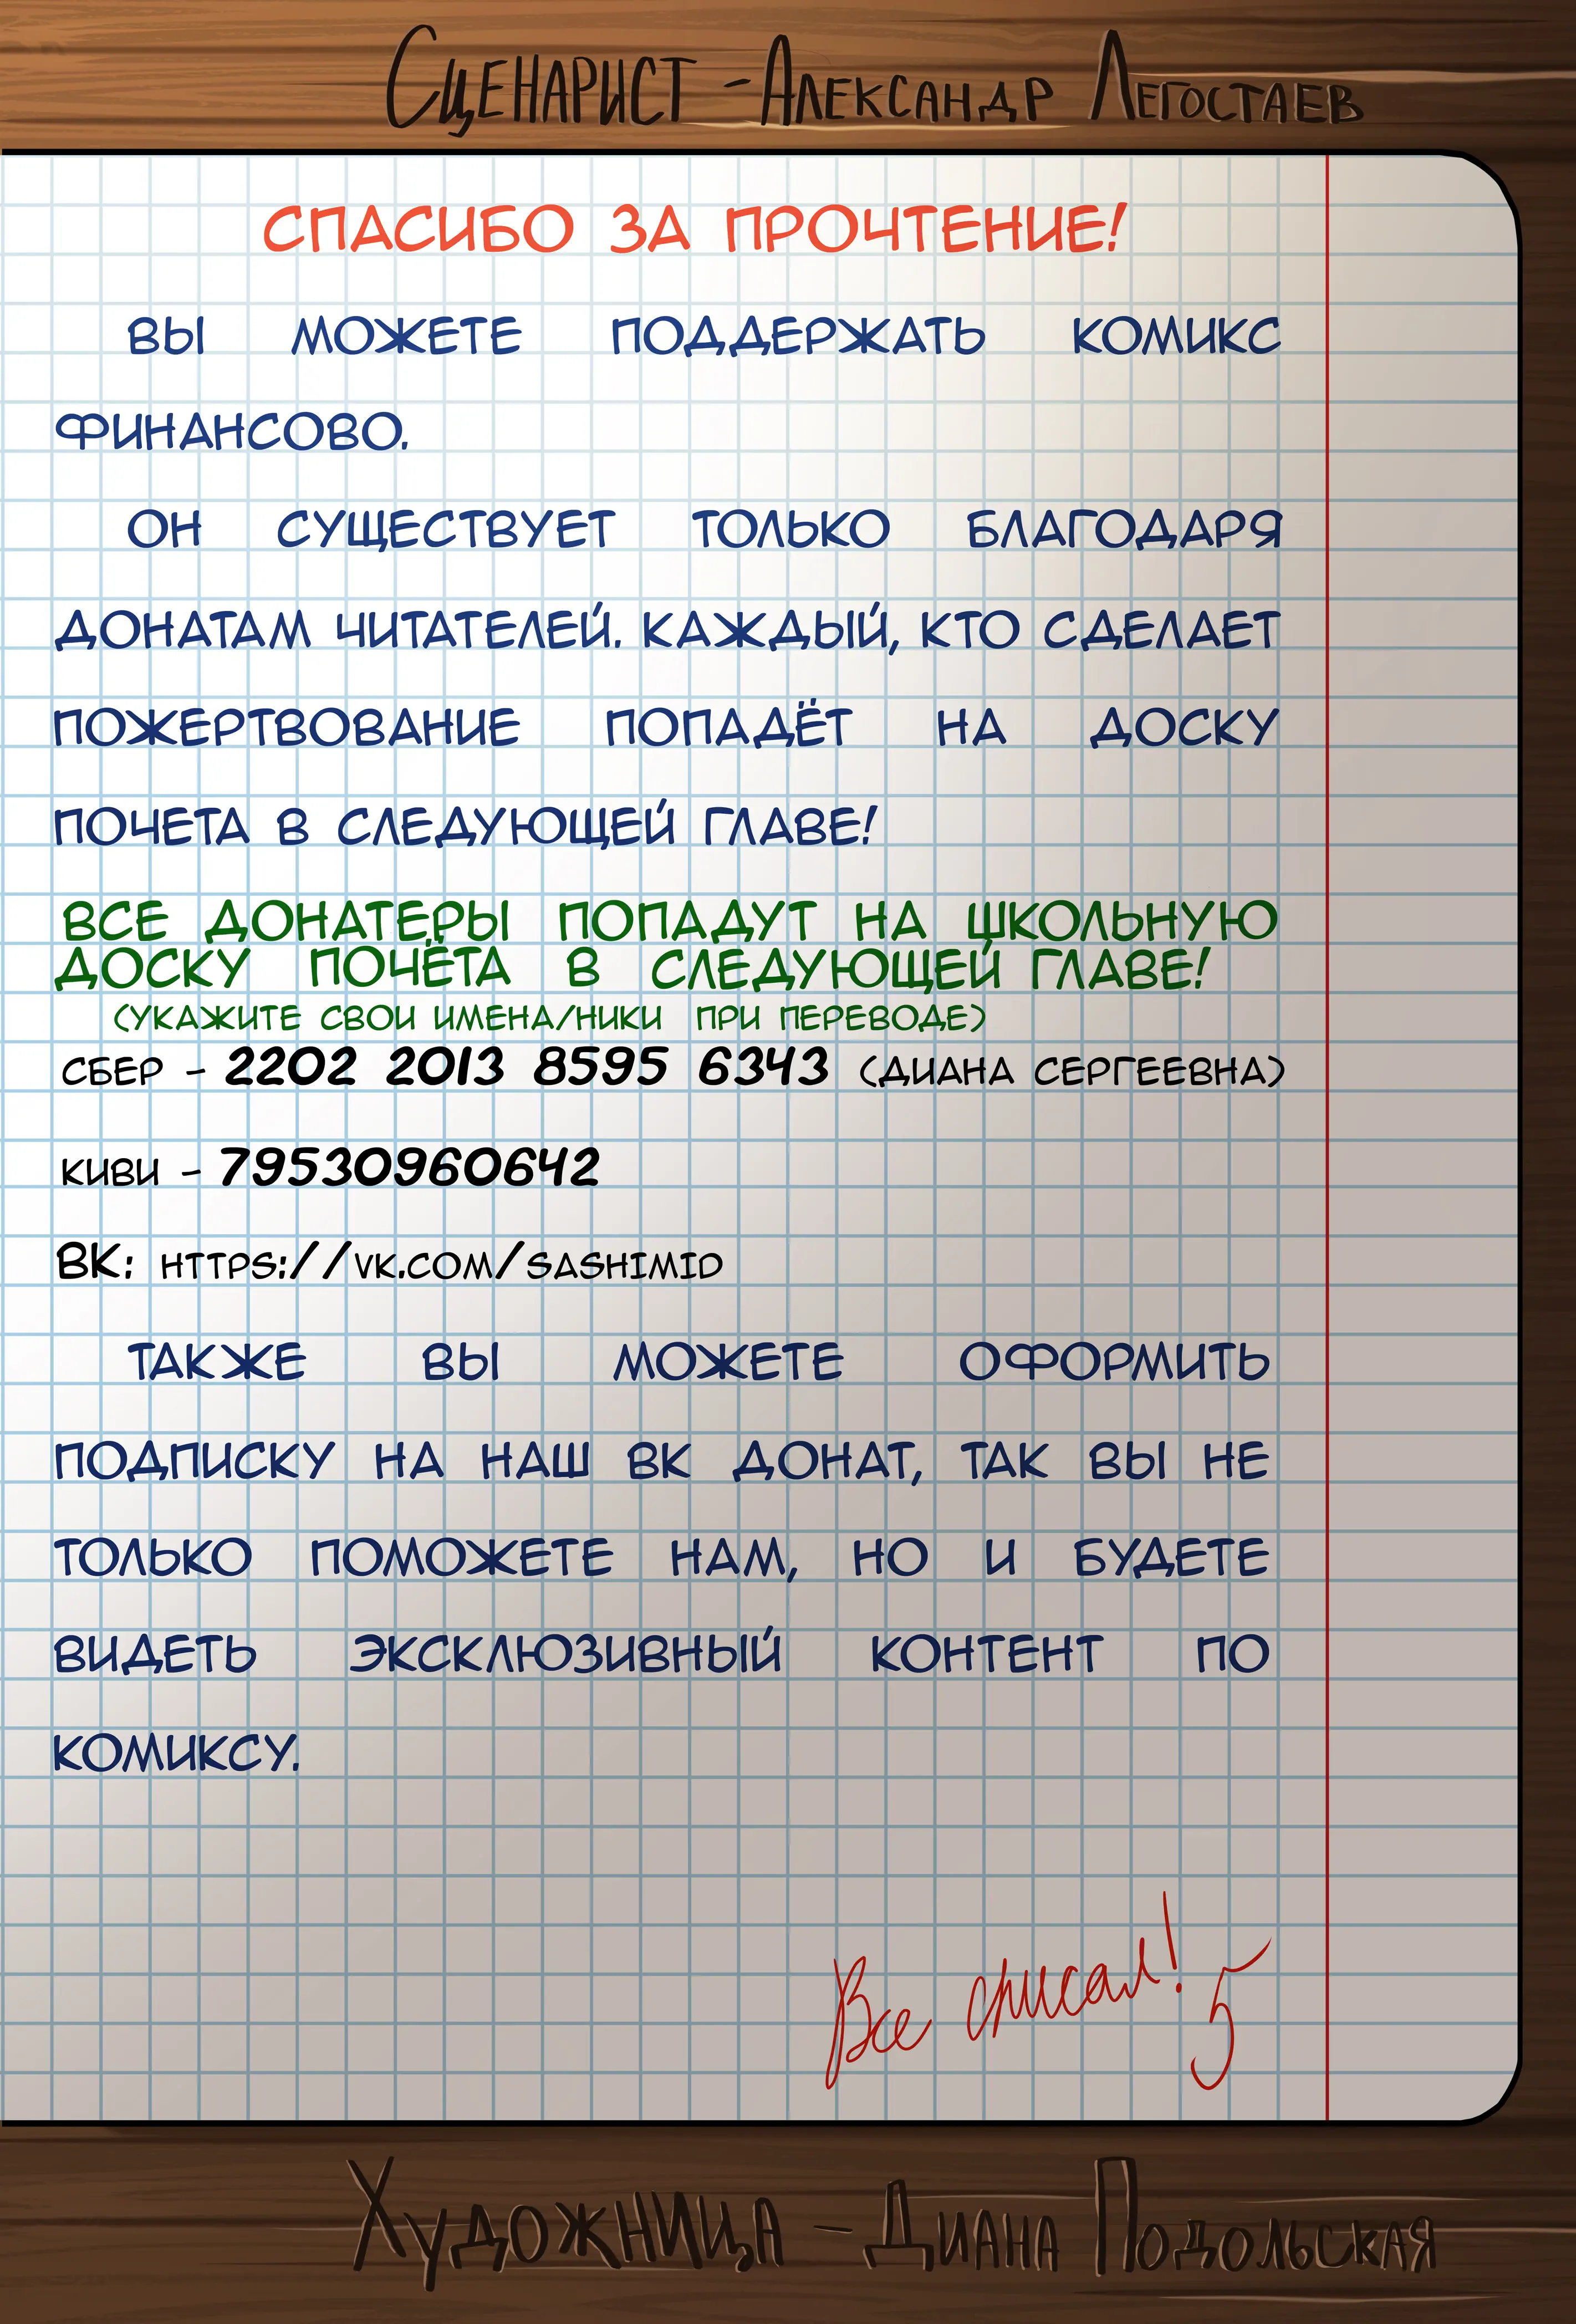 Сценарист - Александр Легостаев
СПАСИБО ЗА ПРОЧТЕНИЕ!
ВЫ МОЖЕТЕ ПОДДЕРЖАТЬ КОМИКС
ФИНАНСОВО.
ОН СУЩЕСТВУЕТ ТОЛЬКО БЛАГОДАРЯ
ДОНАТАМ ЧИТАТЕЛЕЙ. КАЖДЫЙ, КТО СДЕЛАЕТ
ПОЖЕРТВОВАНИЕ ПОПАДЁТ НА ДОСКУ
ПОЧЕТА В СЛЕДУЮЩЕЙ ГЛАВЕ!
ВСЕ ДОНАТЕРЫ ПОПАДУТ НА ШКОЛЬНУЮ
ДОСКУ ПОЧЁТА В СЛЕДУЮЩЕЙ ГЛАВЕ!
(УКАЖИТЕ СВОИ ИМЕНА/НИКИ ПРИ ПЕРЕВОДЕ)
СБЕР - 2202 2013 8595 6343 (ДИАНА СЕРГЕЕВНА)
КИВИ - 79530960642
ВК: HTTPS://VK.COM/SASHIMID
ТАКЖЕ ВЫ МОЖЕТЕ ОФОРМИТЬ
ПОДПИСКУ НА НАШ ВК ДОНАТ, ТАК ВЫ НЕ
ТОЛЬКО ПОМОЖЕТЕ НАМ, НО И БУДЕТЕ
ВИДЕТЬ ЭКСКЛЮЗИВНЫЙ КОНТЕНТ ПО
КОМИКСУ.
Все списал! 5
Художница - Диана Подольская